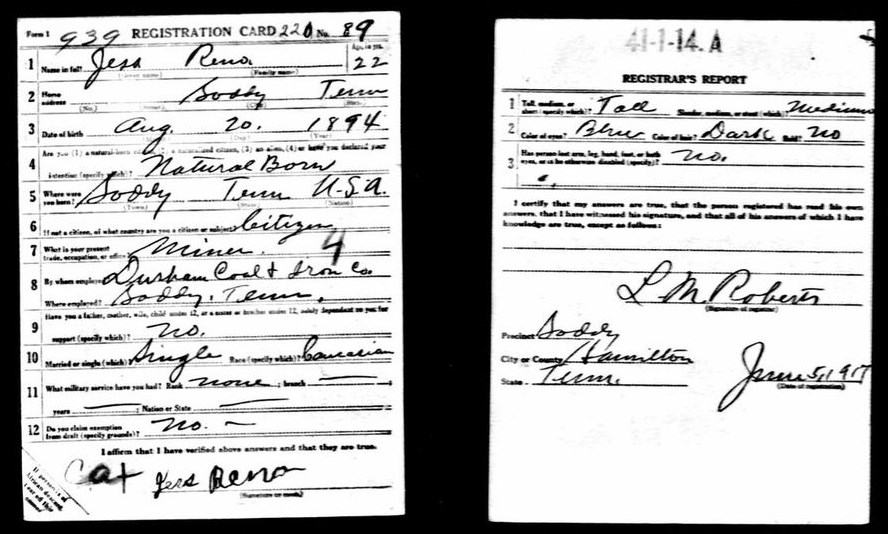 Form 1 939 REGISTRATION CARD 220 No. 89
1 Name in full Jess Reno. Age, in yrs. 22
(Given name) (Family name)
2 Home address Soddy Tenn
(No.) (Street) (City) (State)
3 Date of birth Aug. 20. 1894
(Month) (Day) (Year)
4 Are you (1) a natural-born citizen, (2) a naturalized citizen, (3) an alien, (4) or have you declared your
intention (specify which)? Natural Born
5 Where were you born? Soddy Tenn U.S.A.
(Town) (State) (Nation)
6 If not a citizen, of what country are you a citizen or subject? Citizen
7 What is your present trade, occupation, or office? Miner 4
8 By whom employed? Durham Coal & Iron Co.
Where employed? Soddy, Tenn.
9 Have you a father, mother, wife, child under 12, or a sister or brother under 12, solely dependent on you for
support (specify which)? no.
10 Married or single (which)? Single Race (specify which)? Caucasian
11 What military service have you had? Rank none ; branch
years ; Nation or State
12 Do you claim exemption from draft (specify grounds)? no. -
I affirm that I have verified above answers and that they are true.
Jess Reno
(Signature or mark)
If person is of African descent, tear off this corner
41-1-14. A
REGISTRAR'S REPORT
1 Tall, medium, or short (specify which)? Tall Slender, medium, or stout (which)? Medium
2 Color of eyes? Blue Color of hair? Dark Bald? No
3 Has person lost arm, leg, hand, foot, or both eyes, or is he otherwise disabled (specify)? no.
I certify that my answers are true, that the person registered has read his own
answers, that I have witnessed his signature, and that all of his answers of which I have
knowledge are true, except as follows:
L M Roberts
(Signature of registrar)
Precinct Soddy
City or County Hamilton
State Tenn.
June 5, 1917
(Date of registration)